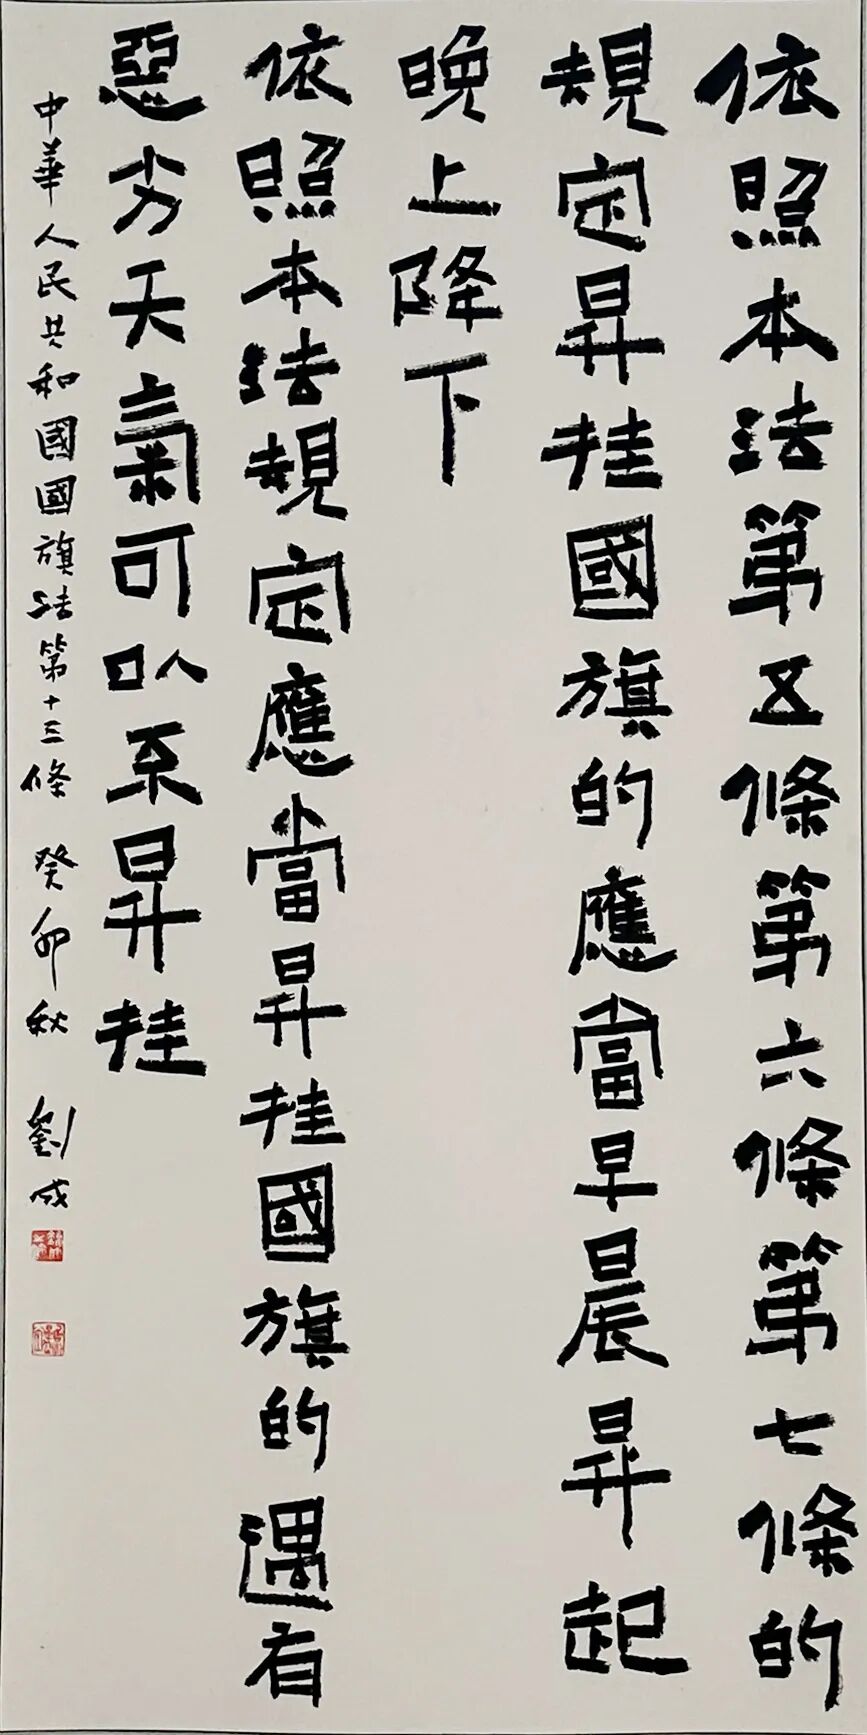 依照本法第五條第六條第七條的
規定昇挂國旗的應當早晨昇起
晚上降下
依照本法規定應當昇挂國旗的遇有
惡劣天氣可以不昇挂
中華人民共和國國旗法第十三條 癸卯秋 劉成